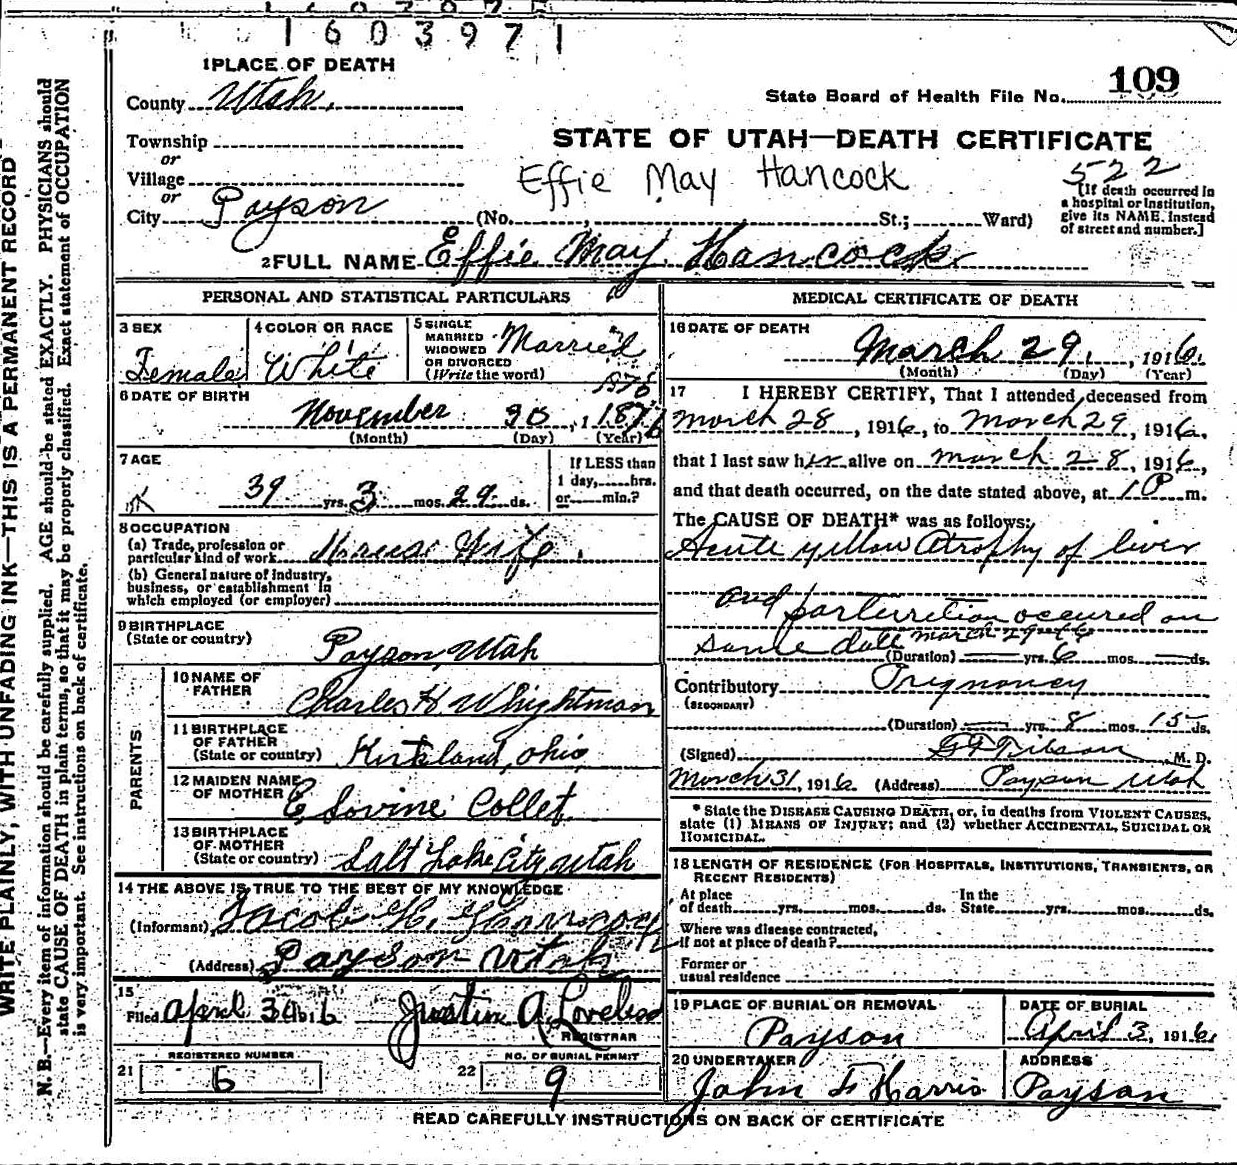 1603971
1 PLACE OF DEATH
109
County Utah.
State Board of Health File No.
Township
STATE OF UTAH—DEATH CERTIFICATE
or
Village
Effie May Hancock
522
or
[If death occurred in a hospital or institution, give its NAME, instead of street and number.]
City Payson (No. , St.; Ward)
2 FULL NAME Effie May Hancock
PERSONAL AND STATISTICAL PARTICULARS
3 SEX
Female
4 COLOR OR RACE
White
5 SINGLE
MARRIED
WIDOWED
OR DIVORCED
(Write the word)
Married
1876
6 DATE OF BIRTH
November 30, 1876
(Month) (Day) (Year)
7 AGE
39 yrs. 3 mos. 29 ds.
If LESS than
1 day, hrs.
or min.?
8 OCCUPATION
(a) Trade, profession or
particular kind of work House Wife.
(b) General nature of industry,
business, or establishment in
which employed (or employer)
9 BIRTHPLACE
(State or country)
Payson, Utah
PARENTS
10 NAME OF
FATHER
Charles H. Whightman
11 BIRTHPLACE
OF FATHER
(State or country) Kirtland, Ohio
12 MAIDEN NAME
OF MOTHER
E Lovine Collet
13 BIRTHPLACE
OF MOTHER
(State or country) Salt Lake City, Utah
14 THE ABOVE IS TRUE TO THE BEST OF MY KNOWLEDGE
(Informant) Jacob H. Hancock
(Address) Payson Utah
15
Filed April 3 1916 Justin A. Loveless
REGISTRAR
REGISTERED NUMBER
21 6
NO. OF BURIAL PERMIT
22 9
MEDICAL CERTIFICATE OF DEATH
16 DATE OF DEATH
March 29, 1916.
(Month) (Day) (Year)
17 I HEREBY CERTIFY, That I attended deceased from
March 28, 1916, to March 29, 1916,
that I last saw her alive on March 28, 1916,
and that death occurred, on the date stated above, at 1 P m.
The CAUSE OF DEATH* was as follows:
Acute yellow Atrophy of liver
and parturition occured on
same date March 29th
(Duration) yrs. 6 mos. ds.
Contributory Pregnancy
(SECONDARY)
(Duration) yrs. 8 mos. 15 ds.
(Signed) M. D.
March 31, 1916 (Address) Payson Utah
* State the DISEASE CAUSING DEATH, or, in deaths from VIOLENT CAUSES,
state (1) MEANS OF INJURY; and (2) whether ACCIDENTAL, SUICIDAL OR
HOMICIDAL.
18 LENGTH OF RESIDENCE (FOR HOSPITALS, INSTITUTIONS, TRANSIENTS, OR
RECENT RESIDENTS)
At place
of death yrs. mos. ds.
In the
State yrs. mos. ds.
Where was disease contracted,
if not at place of death?
Former or
usual residence
19 PLACE OF BURIAL OR REMOVAL
Payson
DATE OF BURIAL
April 3, 1916.
20 UNDERTAKER
John F Harris
ADDRESS
Payson
READ CAREFULLY INSTRUCTIONS ON BACK OF CERTIFICATE
WRITE PLAINLY, WITH UNFADING INK—THIS IS A PERMANENT RECORD
N. B.—Every item of information should be carefully supplied. AGE should be stated EXACTLY. PHYSICIANS should
state CAUSE OF DEATH in plain terms, so that it may be properly classified. Exact statement of OCCUPATION
is very important. See instructions on back of certificate.